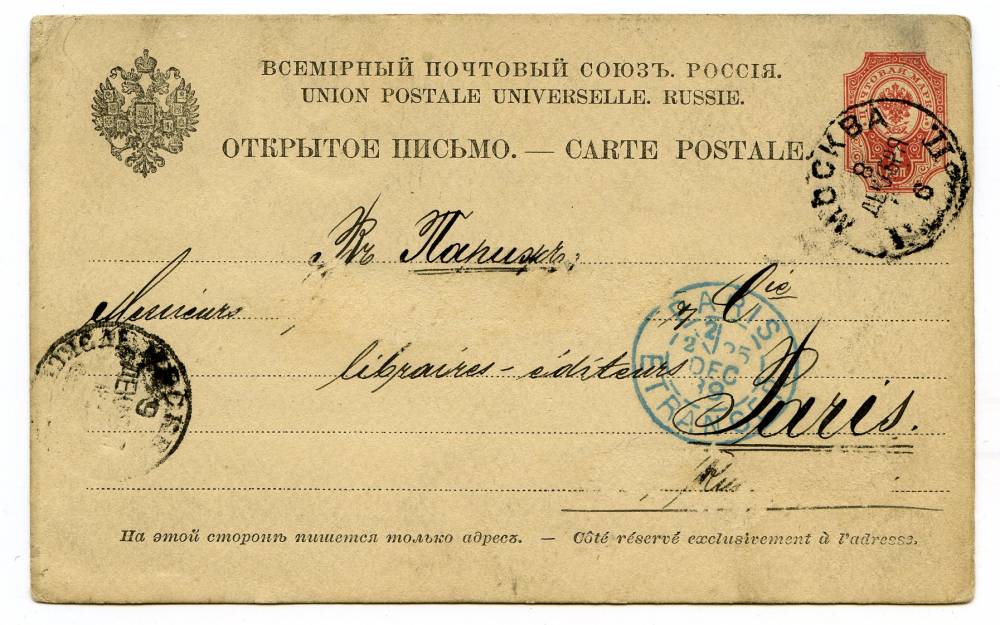 ВСЕМІРНЫЙ ПОЧТОВЫЙ СОЮЗЪ. РОССІЯ.
UNION POSTALE UNIVERSELLE. RUSSIE.
ОТКРЫТОЕ ПИСЬМО. — CARTE POSTALE.
ПОЧТОВАЯ МАРКА
МОСКВА
8
ДЕКАБРЯ
6
Въ Парижъ.
Messieurs
& Cie
libraires-éditeurs
Paris.
PARIS
DEC
ETRANGER
На этой сторонѣ пишется только адресъ. — Côté réservé exclusivement à l'adresse.